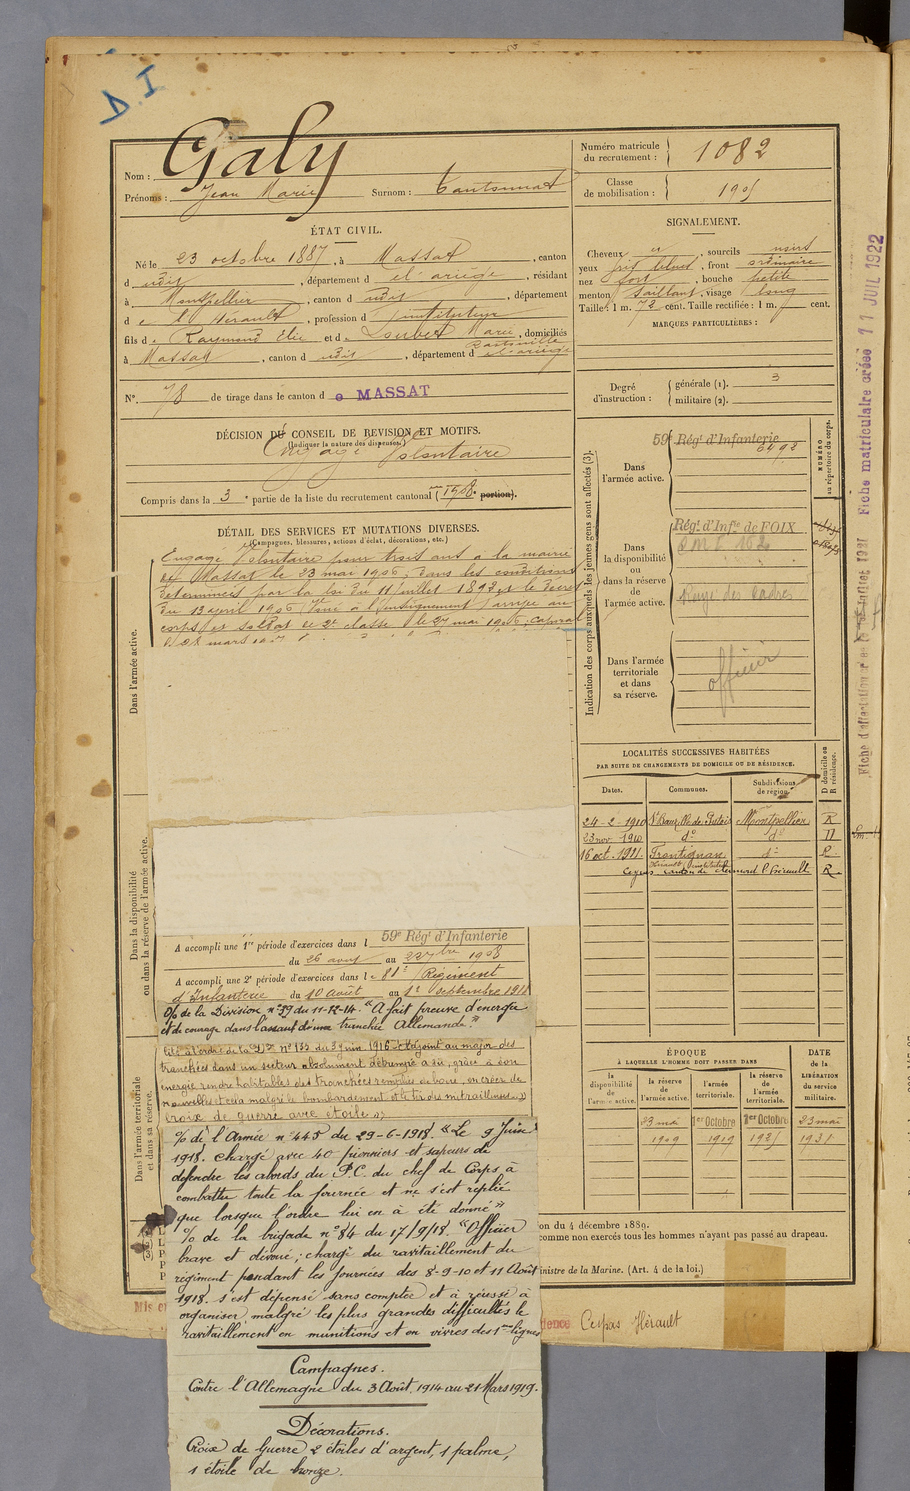 D.I
Nom : Galy
Prénoms : Jean Marie Surnom :
Numéro matricule
du recrutement : 1082
Classe
de mobilisation : 1905
ÉTAT CIVIL.
Né le 23 octobre 1887, à Massat, canton
d udit, département d e l'ariège, résidant
à Montpellier, canton d udit, département
d e l'Hérault, profession d' instituteur
fils d e Raymond Elie et d e Loubet Marie, domiciliés
à Massat, canton d udit, département d e l'ariège
N°. 78 de tirage dans le canton d e MASSAT
DÉCISION DU CONSEIL DE REVISION ET MOTIFS.
(Indiquer la nature des dispenses.)
Engagé Volontaire
Compris dans la 3e partie de la liste du recrutement cantonal (1908. portion).
SIGNALEMENT.
Cheveux, sourcils noirs
yeux, front ordinaire
nez fort, bouche petite
menton saillant, visage long
Taille : 1 m. 72 cent. Taille rectifiée : 1 m. cent.
MARQUES PARTICULIÈRES :
Degré
d'instruction :
générale (1). 3
militaire (2).
DÉTAIL DES SERVICES ET MUTATIONS DIVERSES.
(Campagnes, blessures, actions d'éclat, décorations, etc.)
Engagé Volontaire pour trois ans à la mairie
de Massat le 23 mai 1906, dans les conditions
déterminées par la loi du 11 juillet 1892 et le décret
du 13 april 1906 arrivé au
corps et soldat de 2e classe le 27 mai 1906. Caporal
Dans l'armée active.
Dans la disponibilité
ou dans la réserve de l'armée active.
Dans l'armée territoriale
et dans sa réserve.
Indication des corps auxquels les jeunes gens sont affectés (3).
NUMÉRO
au répertoire du corps.
Dans
l'armée active.
59e Régt d'Infanterie
Dans
la disponibilité
ou
dans la réserve
de
l'armée active.
Régt d'Infie de FOIX
Dans l'armée
territoriale
et dans
sa réserve.
officier
Fiche matriculaire créée 11 JUIL 1922
LOCALITÉS SUCCESSIVES HABITÉES
PAR SUITE DE CHANGEMENTS DE DOMICILE OU DE RÉSIDENCE.
Dates. Communes. Subdivisions de région. D domicile ou R résidence.
24-2-1910 St Bauzille de Putois Montpellier R
23 nov. 1910 do do D
16 oct. 1921. Frontignan do R
Ceyras canton de Clermont l'Hérault R
A accompli une 1re période d'exercices dans l 59e Régt d'Infanterie
du 26 août au 22 1908
A accompli une 2e période d'exercices dans l e 81e Régiment
d'Infanterie du 10 août au 1er septembre 1911
O/ de la Division n° 39 du 11-12-14. "A fait preuve d'énergie
et de courage dans l'assaut d'une tranchée Allemande."
Cité à l'ordre de la Don n° 133 du 3 juin 1916 adjoint au major des
tranchées dans un secteur absolument a su, grâce à son
énergie, rendre habitables des tranchées remplies de boue, en créer de
nouvelles et cela malgré le bombardement et le tir des mitrailleuses.»
Croix de guerre avec étoile.»
O/ de l'Armée n° 445 du 29-6-1918. "Le 9 Juin
1918. chargé avec 40 pionniers et sapeurs de
défendre les abords du P.C. du chef de Corps, a
combattu toute la journée et ne s'est replié
que lorsque l'ordre lui en a été donné"
O/ de la brigade n° 84 du 17/9/18. "Officier
brave et dévoué; chargé du ravitaillement du
régiment pendant les journées des 8-9-10 et 11 Août
1918. s'est dépensé sans compter et a réussi à
organiser malgré les plus grandes difficultés le
ravitaillement en munitions et en vivres des 1ères lignes
Campagnes.
Contre l'Allemagne du 3 Août 1914 au 21 Mars 1919.
Décorations.
Croix de Guerre 2 étoiles d'argent, 1 palme,
1 étoile de bronze.
ÉPOQUE
À LAQUELLE L'HOMME DOIT PASSER DANS
la disponibilité de l'armée active. la réserve de l'armée active. l'armée territoriale. la réserve de l'armée territoriale.
DATE
de la
LIBÉRATION
du service
militaire.
23 mai 1er Octobre 1er Octobre 23 mai
1909 1919 1925 1931
on du 4 décembre 1889.
comme non exercés tous les hommes n'ayant pas passé au drapeau.
inistre de la Marine. (Art. 4 de la loi.)
Ceyras Hérault